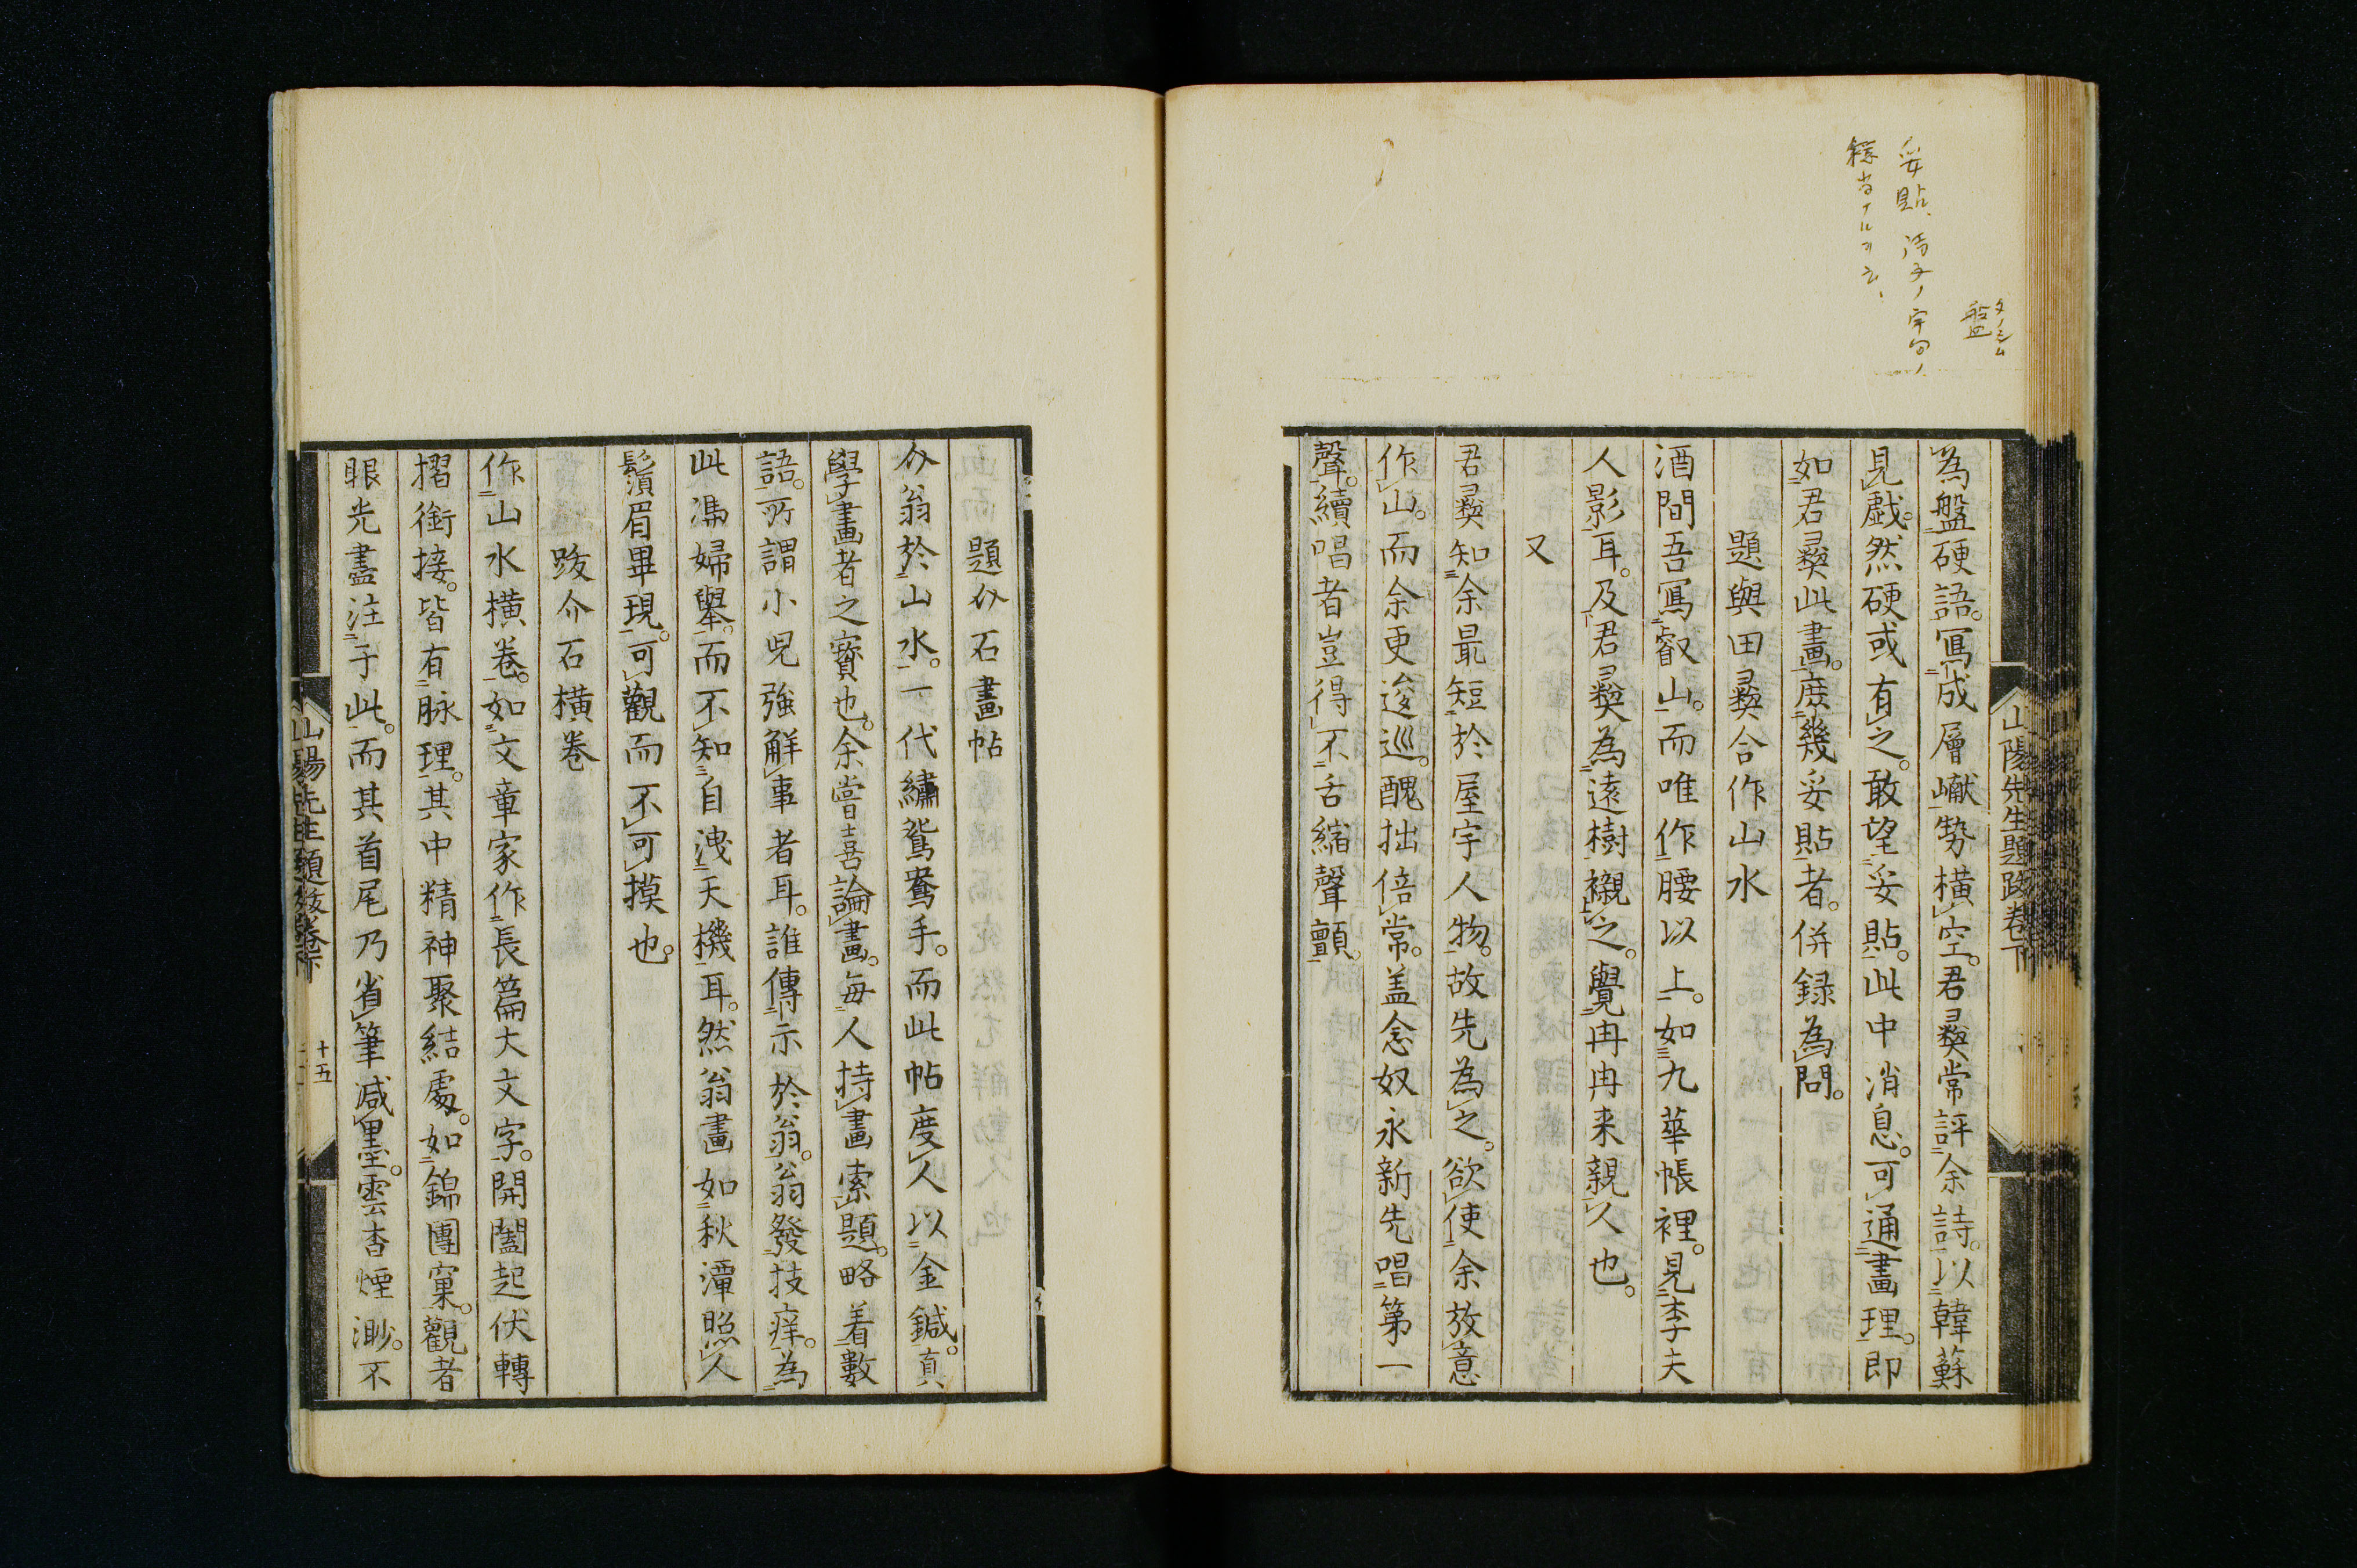 タノシム
盤
妥貼、詩文ノ字句ノ
穏当ナルヲ云、
山陽先生題跋卷下
為盤硬語。寫成層巘勢橫空。君彜常評余詩。以韓蘇
見戯。然硬或有之。敢望妥貼。此中消息。可通畫理。即
如君彜此畫。庶幾妥貼者。併録為問。
題與田彜合作山水
酒間吾寫叡山。而唯作腰以上。如九華帳裡。見李夫
人影耳。及君彜為遠樹襯之。覺冉冉来親人也。
又
君彜知余最短於屋宇人物。故先為之。欲使余放意
作山。而余更逡巡。醜拙倍常。盖念奴永新先唱第一
聲。續唱者豈得不舌縮聲顫。
題介石畫帖
介翁於山水。一代繡鴛鴦手。而此帖度人以金鍼。真
學畫者之寳也。余嘗喜論畫。每人持畫索題。略着數
語。所謂小児強解事者耳。誰傳示於翁。翁發技痒。為
此馮婦舉。而不知自洩天機耳。然翁畫如秋潭照人
鬚眉畢現。可觀而不可摸也。
跋介石橫卷
作山水橫卷。如文章家作長篇大文字。開闔起伏轉
摺銜接。皆有脉理。其中精神聚結處。如錦團窠。觀者
眼光盡注于此。而其首尾乃省筆减墨。雲杳煙渺。不
山陽先生題跋卷下
十五